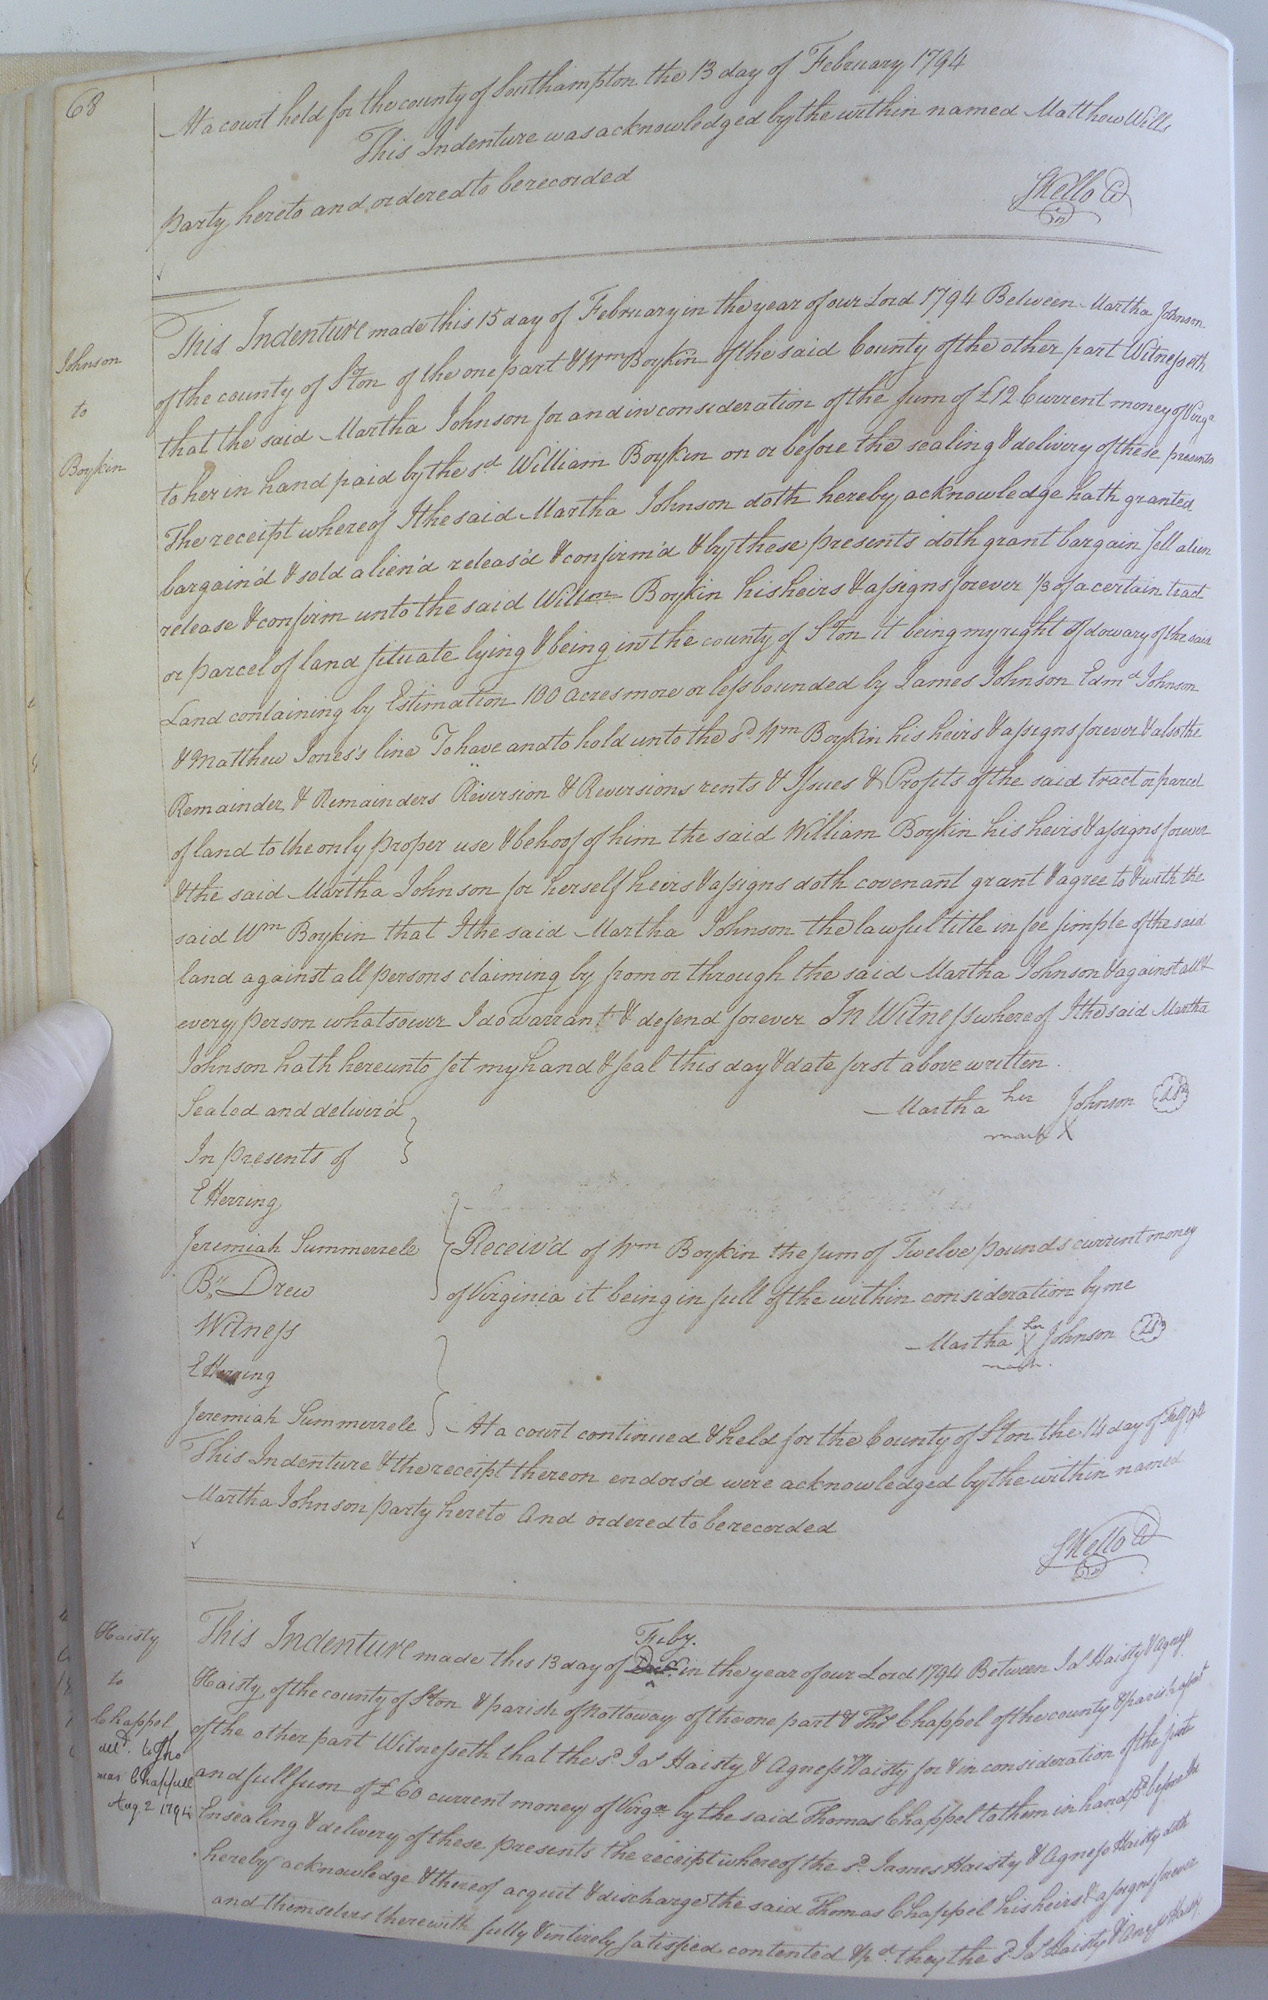 68
At a court held for the county of Southampton the 13 day of February 1794
This Indenture was acknowledged by the within named Matthew Wills
party hereto and ordered to be recorded
SKello Cl
Johnson
to
Boykin
This Indenture made this 15 day of February in the year of our Lord 1794 Between Martha Johnson
of the county of S°ton of the one part & Wm Boykin of the said County of the other part Witnesseth
that the said Martha Johnson for and in consideration of the sum of £12 Current money of Virga
to her in hand paid by the sd William Boykin on or before the sealing & delivery of these presents
The receipt whereof I the said Martha Johnson doth hereby acknowledge hath granted
bargain'd & sold alien'd releas'd & confirm'd & by these presents doth grant bargain sell alien
release & confirm unto the said Willm Boykin his heirs & assigns forever 1/3 of a certain tract
or parcel of land situate lying & being in the county of S°ton it being my right of dowary of the said
Land containing by Estimation 100 acres more or less bounded by James Johnson Edmd Johnson
& Matthew Jones's line To have and to hold unto the sd Wm Boykin his heirs & assigns forever & also the
Remainder & Remainders Reversion & Reversions rents & Issues & Profits of the said tract or parcel
of land to the only proper use & behoof of him the said William Boykin his heirs & assigns forever
& the said Martha Johnson for herself heirs & assigns doth covenant grant & agree to & with the
said Wm Boykin that I the said Martha Johnson the lawful title in fee simple of the said
land against all persons claiming by from or through the said Martha Johnson & against all &
every person whatsoever I do warrant & defend forever In Witness whereof I the said Martha
Johnson hath hereunto set my hand & seal this day & date first above written.
Sealed and deliver'd
In presents of
E Herring
Jeremiah Summerrele
Bn Drew
Martha her Johnson LS
mark X
Receiv'd of Wm Boykin the sum of Twelve pounds current money
of Virginia it being in full of the within consideration by me
Witness
E Herring
Jeremiah Summerrele
Martha her X Johnson LS
mark.
At a court continued & held for the County of S°ton the 14 day of Feby 1794
This Indenture & the receipt thereon endors'd were acknowledged by the within named
Martha Johnson party hereto And ordered to be recorded
SKello Cl
Haisty
to
Chappel
deld. to Tho
mas Chappell
Aug 2 1794
This Indenture made this 13 day of Feby. in the year of our Lord 1794 Between Jas Haisty & Agness
Haisty of the county of S°ton & parish of Nottoway of the one part & Thos Chappel of the county & parish afsd
of the other part Witnesseth that the sd. Jas Haisty & Agness Haisty for & in consideration of the just
and full sum of £60 current money of Virga by the said Thomas Chappel to them in hand pd. before the
Ensealing & delivery of these presents the receipt whereof the sd. James Haisty & Agness Haisty doth
hereby acknowledge & thereof acquit & discharge the said Thomas Chappel his heirs & assigns forever
and themselves therewith fully & entirely satisfied contented & pd. they the sd. Jas Haisty & Agness Haisty